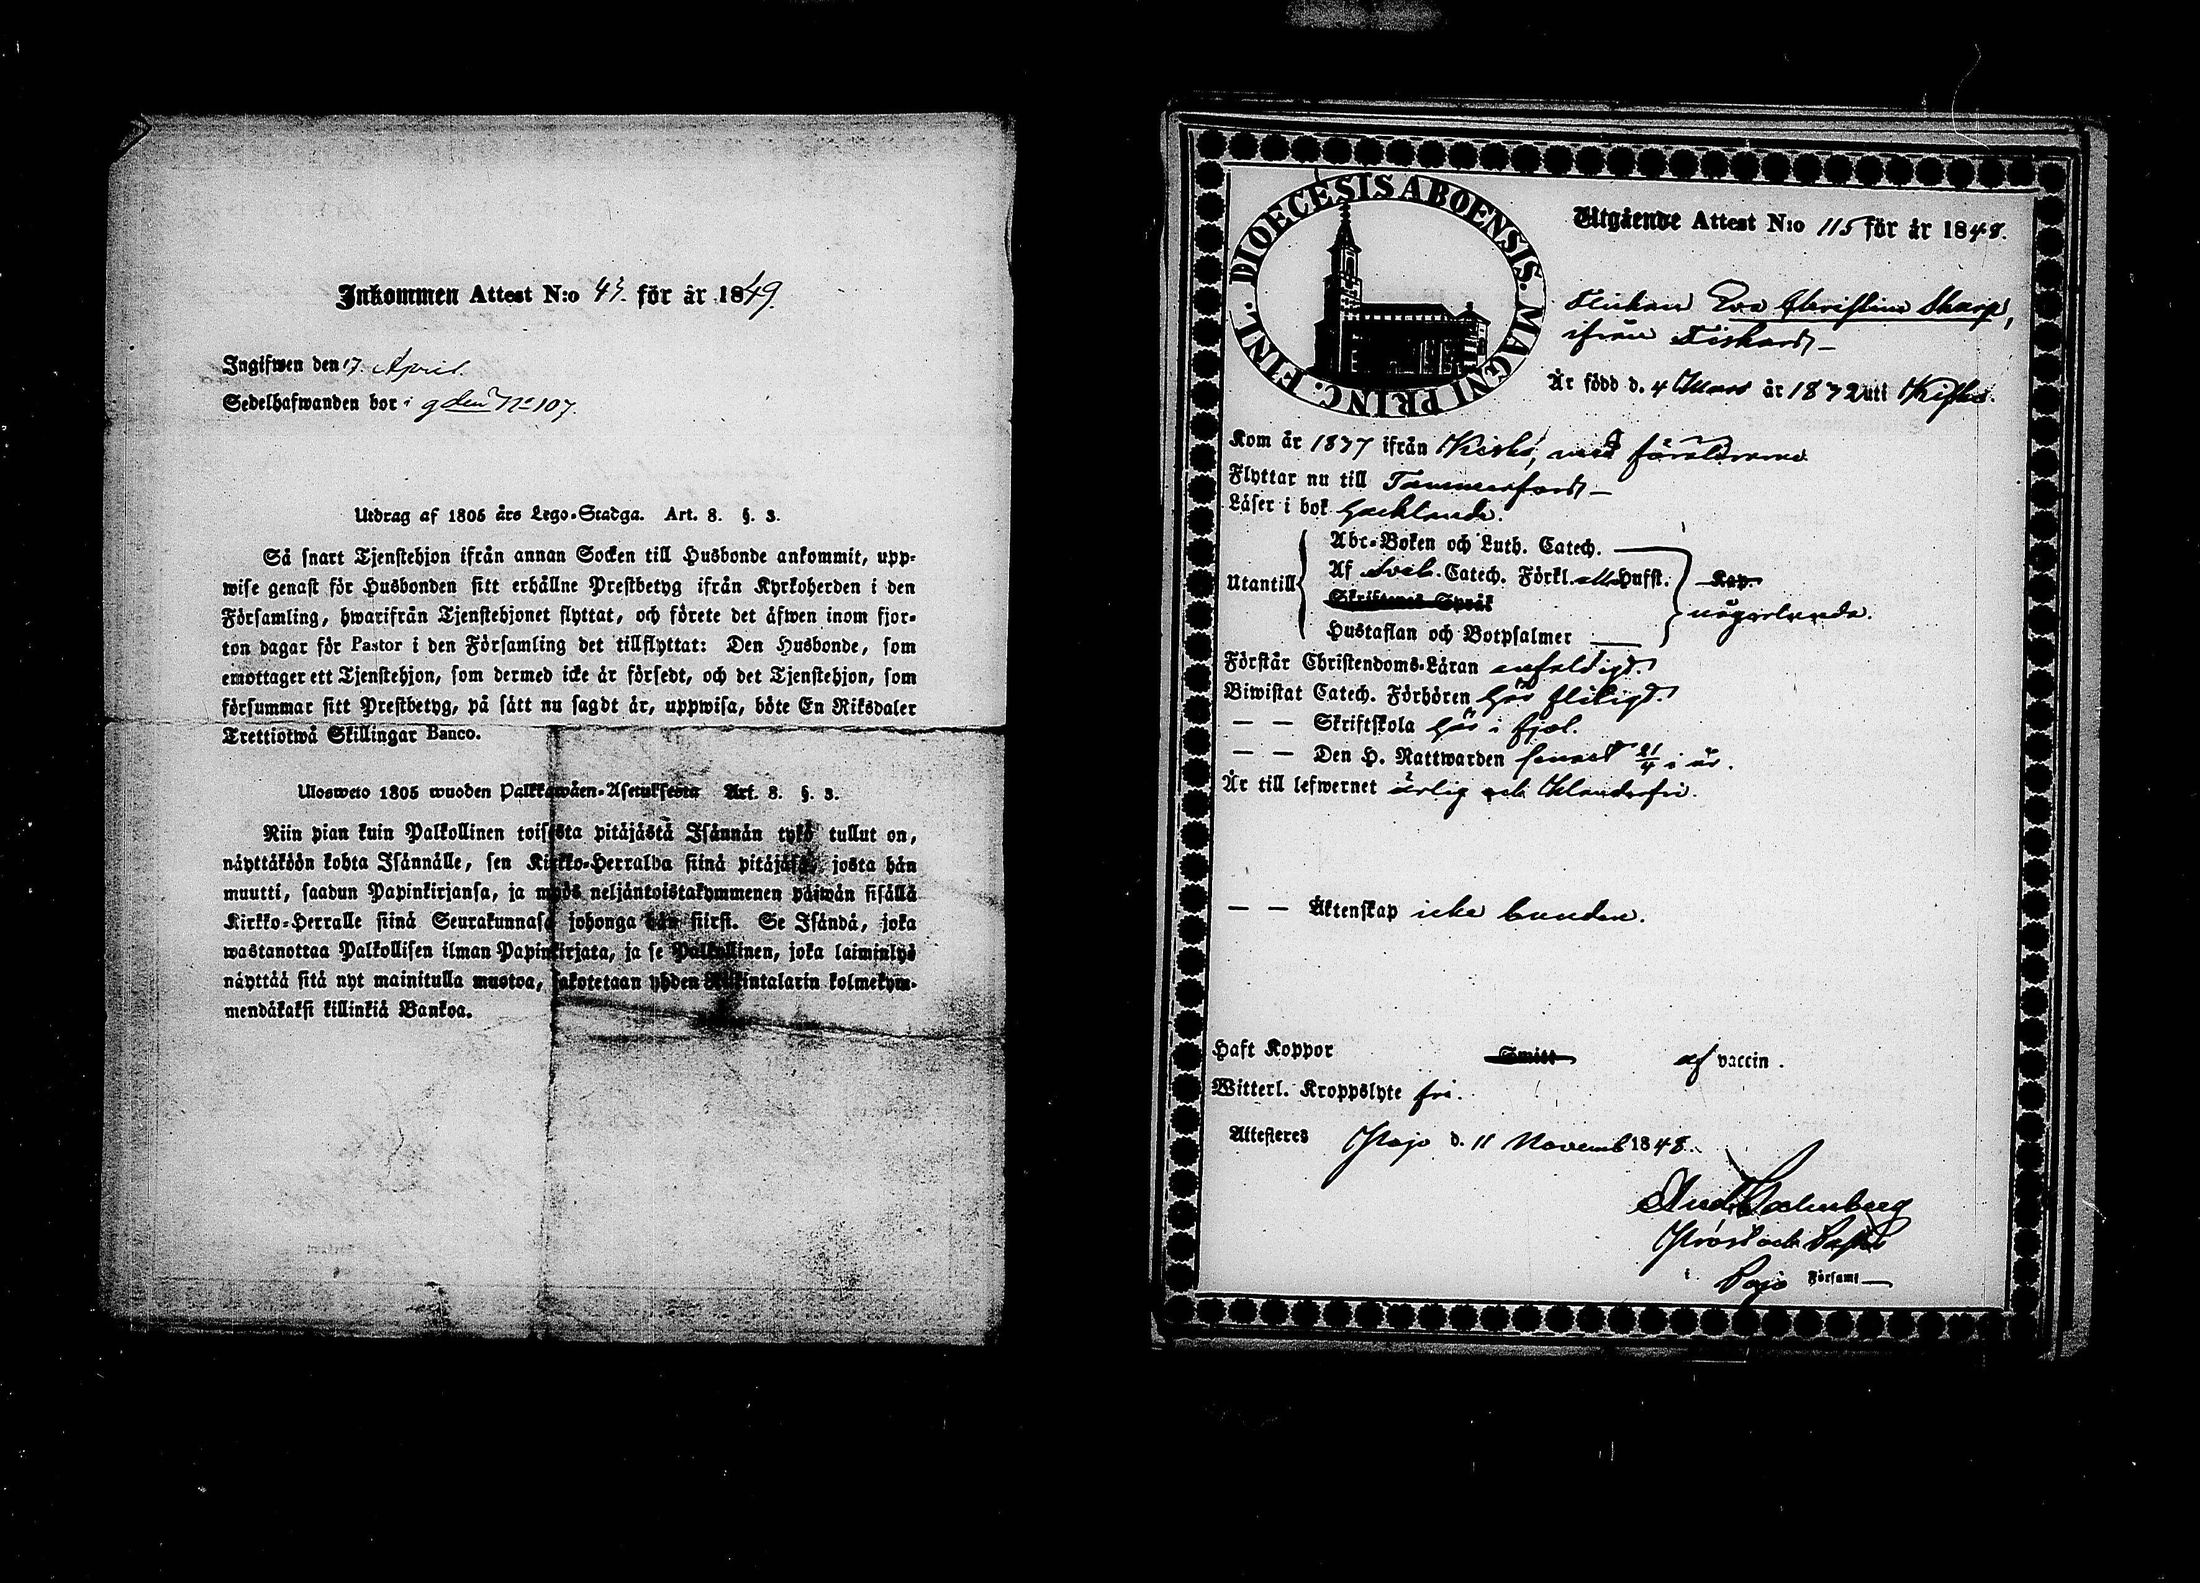 Inkommen Attest N:o 43. för år 1849.
Ingifwen den 17. April.
Sedelhafwanden bor i gden No 107.
Utdrag af 1805 års Lego-Stadga. Art. 8. §. 3.
Så snart Tjenstehjon ifrån annan Socken till Husbonde ankommit, upp-
wise genast för Husbonden sitt erhållne Prestbetyg ifrån Kyrkoherden i den
Församling, hwarifrån Tjenstehjonet flyttat, och förete det äfwen inom fjor-
ton dagar för Pastor i den Församling det tillflyttat: Den Husbonde, som
emottager ett Tjenstehjon, som dermed icke är försedt, och det Tjenstehjon, som
försummar sitt Prestbetyg, på sätt nu sagdt är, uppwisa, böte En Riksdaler
Trettiotwå Skillingar Banco.
Ulosweto 1805 wuoden Palkkawäen-Asetuksesta Art. 8. §. 3.
Niin pian kuin Palkollinen toisesta pitäjästä Isännän tykö tullut on,
näyttäköön kohta Isännälle, sen Kirkko-Herralda siinä pitäjäsä, josta hän
muutti, saadun Papinkirjansa, ja myös neljäntoistakymmenen päiwän sisällä
Kirkko-Herralle siinä Seurakunnasa johonga hän siirsi. Se Isändä, joka
wastanottaa Palkollisen ilman Papinkirjata, ja se Palkollinen, joka laiminlyö
näyttää sitä nyt mainitulla muotoa, sakotetaan yhden Riikintalarin kolmekym-
mendäkaksi killinkiä Bankoa.
DIOECESIS ABOENSIS. MAGNI PRINC. FINL.
Utgående Attest N:o 115 för år 1848.
Flickan Eva Christina Skarp,
ifrån Fiskars
Är född d. 4 Mars år 1832 uti Kisko.
Kom år 1837 ifrån Kisko, med föräldrarne
Flyttar nu till Tammerfors
Läser i bok hacklande.
Utantill
Abc-Boken och Luth. Catech.
Af Sveb. Catech. Förkl. alla Hufst.
Skriftenes Språk
Hustaflan och Botpsalmer
Kap.
någorlunda.
Förstår Christendoms-Läran enfaldigt.
Biwistat Catech. Förhören här flitigt.
— — Skriftskola här i fjol.
— — Den H. Nattwarden senast 21/4 i år.
Är till lefwernet ärlig och klanderfri.
— — Äktenskap icke bunden.
Haft Koppor Smitt af vaccin.
Witterl. Kroppslyte fri.
Attesteres Pojo d. 11 Novemb 1848.
Prost och Past
i Pojo Församl